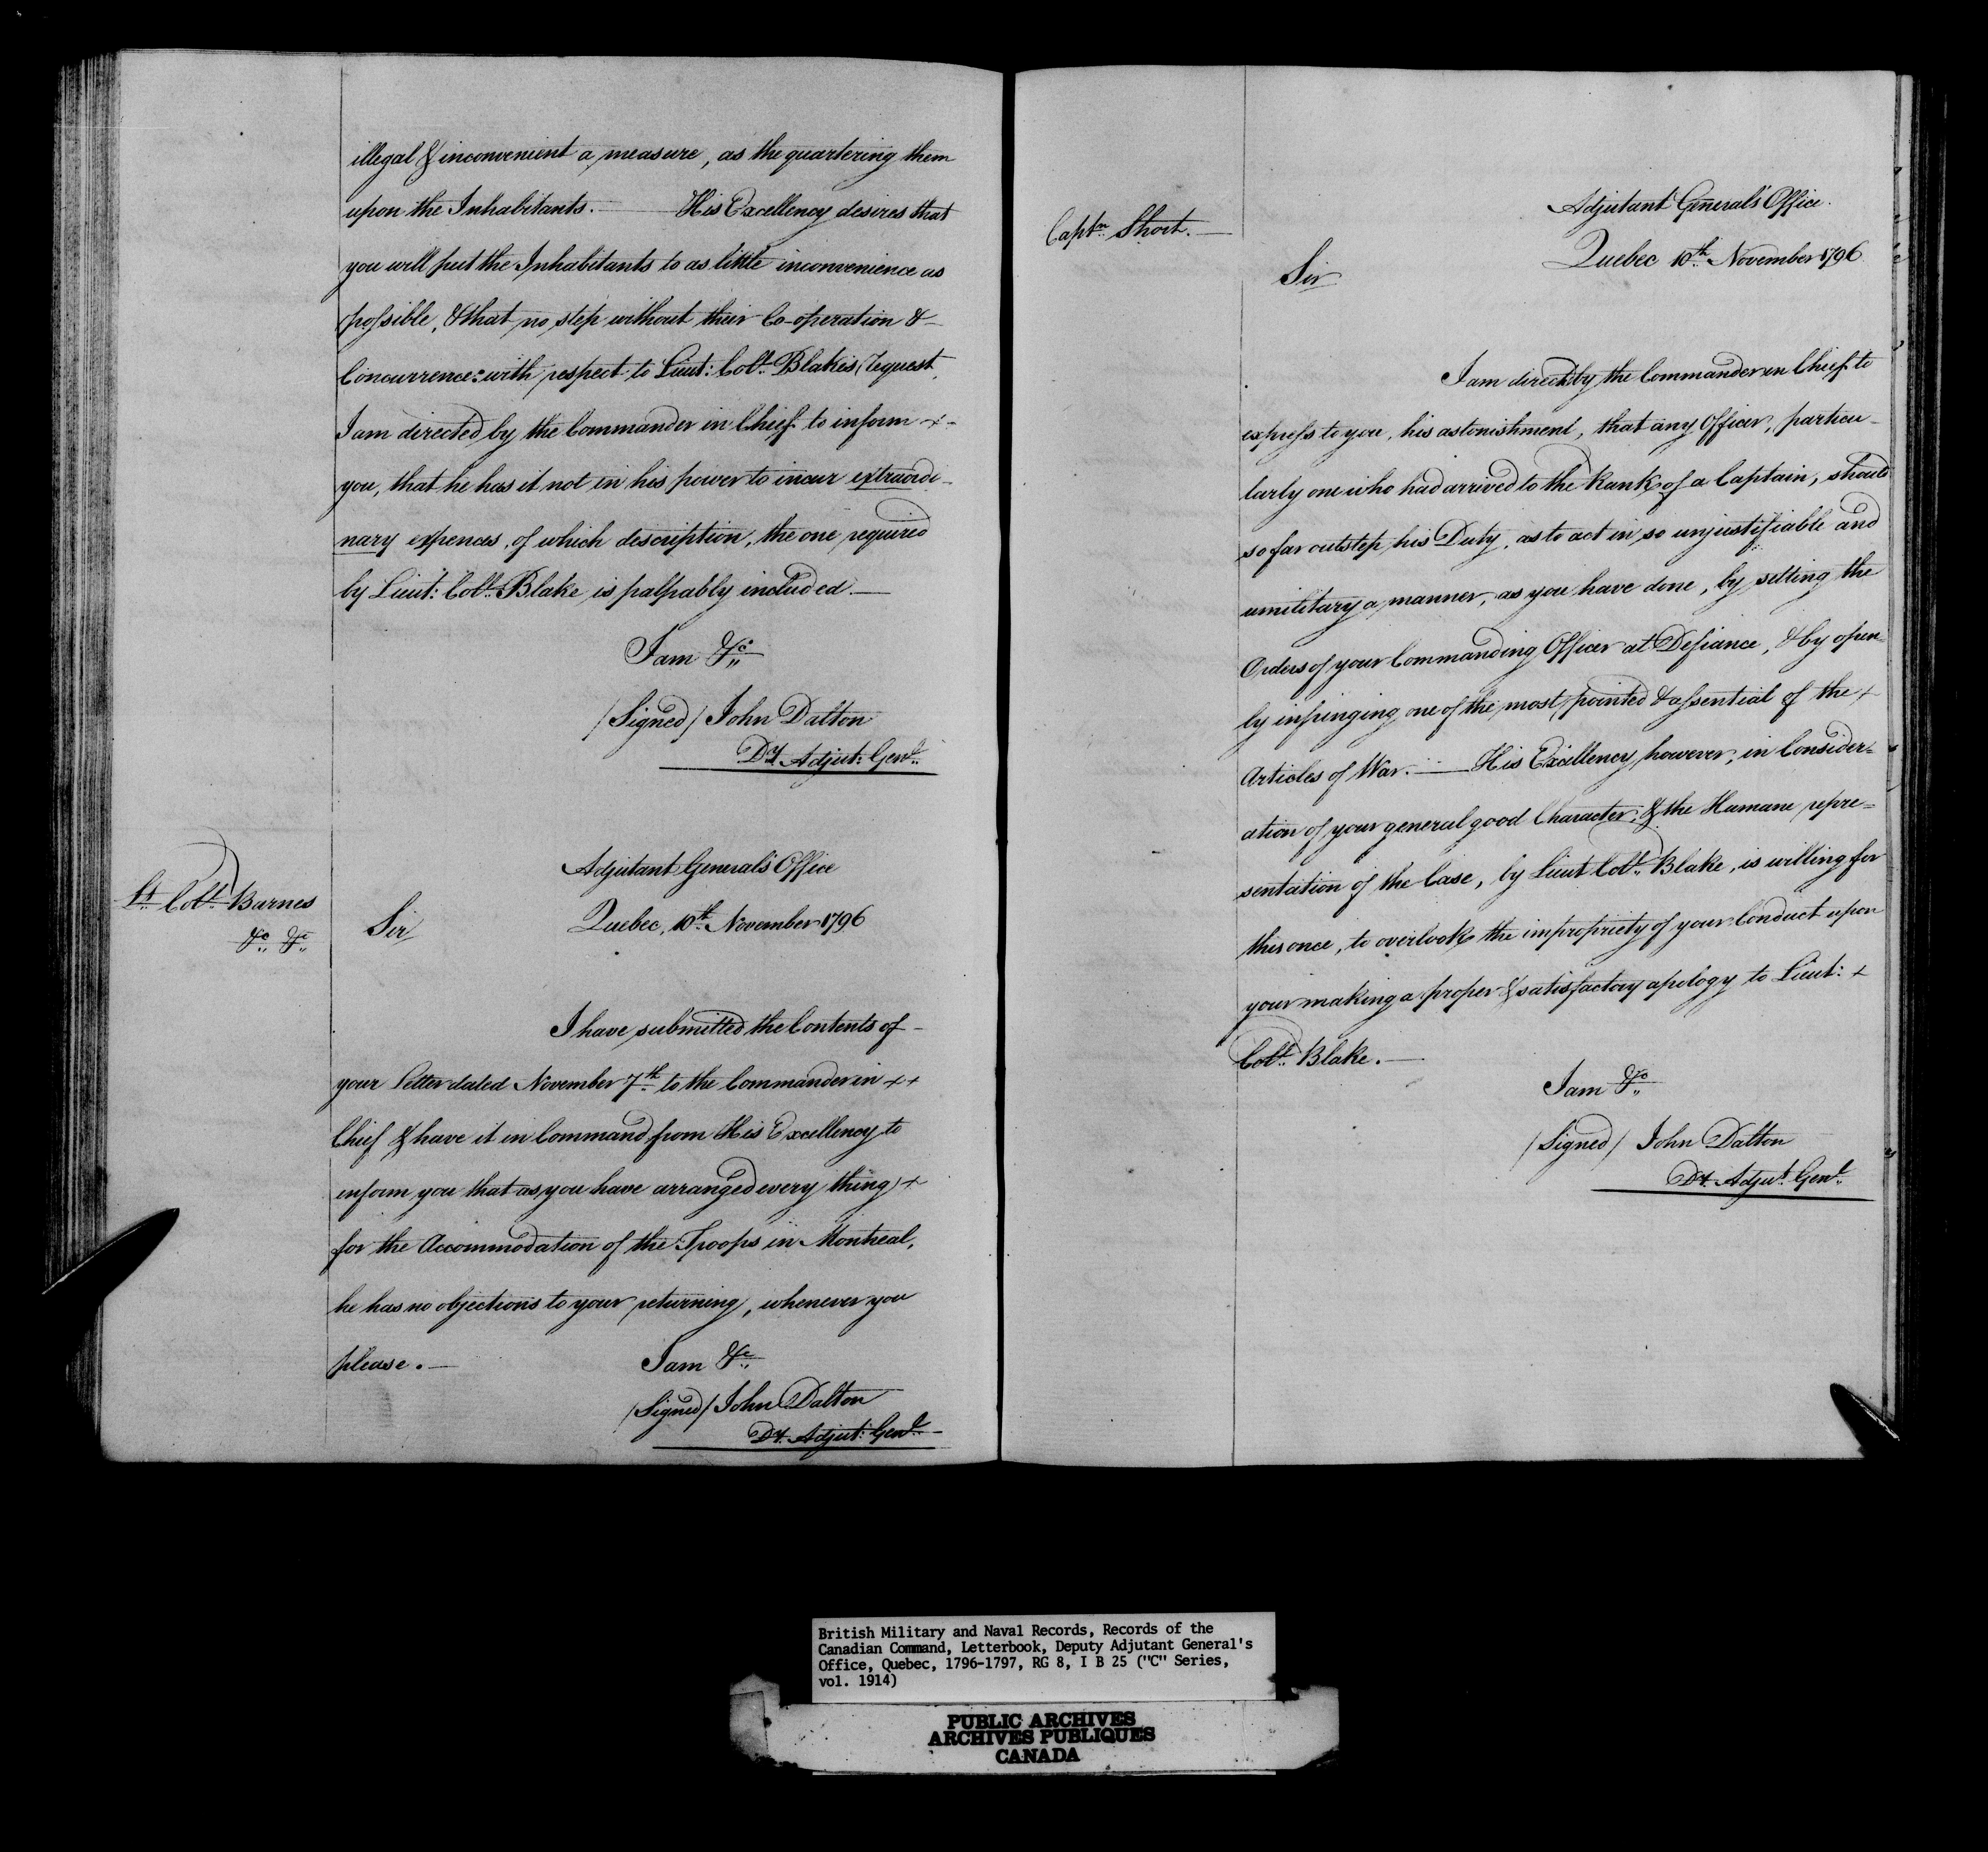 illegal & inconvenient a measure, as the quartering them
upon the Inhabitants. — His Excellency desires that
you will put the Inhabitants to as little inconvenience as
possible, & that no step without their Co-operation &
Concurrence: with respect to Lieut: Col.^l Blake's Request,
I am directed by the Commander in Chief to inform
you, that he has it not in his power to incur extraordi-
nary expences, of which description, the one required
by Lieut: Col.^l Blake is palpably included. —
I am &c
/Signed/ John Dalton
Dy. Adjut: Gen.^l
Lt. Col.^l Barnes
&c &c
Adjutant General's Office
Quebec, 10.^th November 1796
Sir
I have submitted the Contents of
your letter dated November 7.^th to the Commander in ++
Chief & have it in Command from His Excellency to
inform you that as you have arranged every thing +
for the Accommodation of the Troops in Montreal,
he has no objections to your returning, whenever you
please. —
I am &c
/Signed/ John Dalton
Dy. Adjut: Gen.^l
Capt.^n Short. —
Adjutant General's Office.
Quebec 10.^th November 1796
Sir
I am direct by the Commander in Chief to
express to you, his astonishment, that any Officer, particu-
larly one who had arrived to the Rank of a Captain, should
so far outstep his Duty, as to act in so unjustifiable and
umilitary a manner, as you have done, by setting the
Orders of your Commanding Officer at Defiance, & by open-
ly infringing one of the most pointed & essential of the +
Articles of War. — His Excellency, however, in Consider-
ation of your general good Character, & the Humane repre=
sentation of the Case, by Lieut Col.^l Blake, is willing for
this once, to overlook the impropriety of your Conduct upon
your making a proper & satisfactory apology to Lieut: +
Col.^l Blake. —
I am &c
/Signed/ John Dalton
Dy. Adju.^t Gen.^l
British Military and Naval Records, Records of the
Canadian Command, Letterbook, Deputy Adjutant General's
Office, Quebec, 1796-1797, RG 8, I B 25 ("C" Series,
vol. 1914)
PUBLIC ARCHIVES
ARCHIVES PUBLIQUES
CANADA